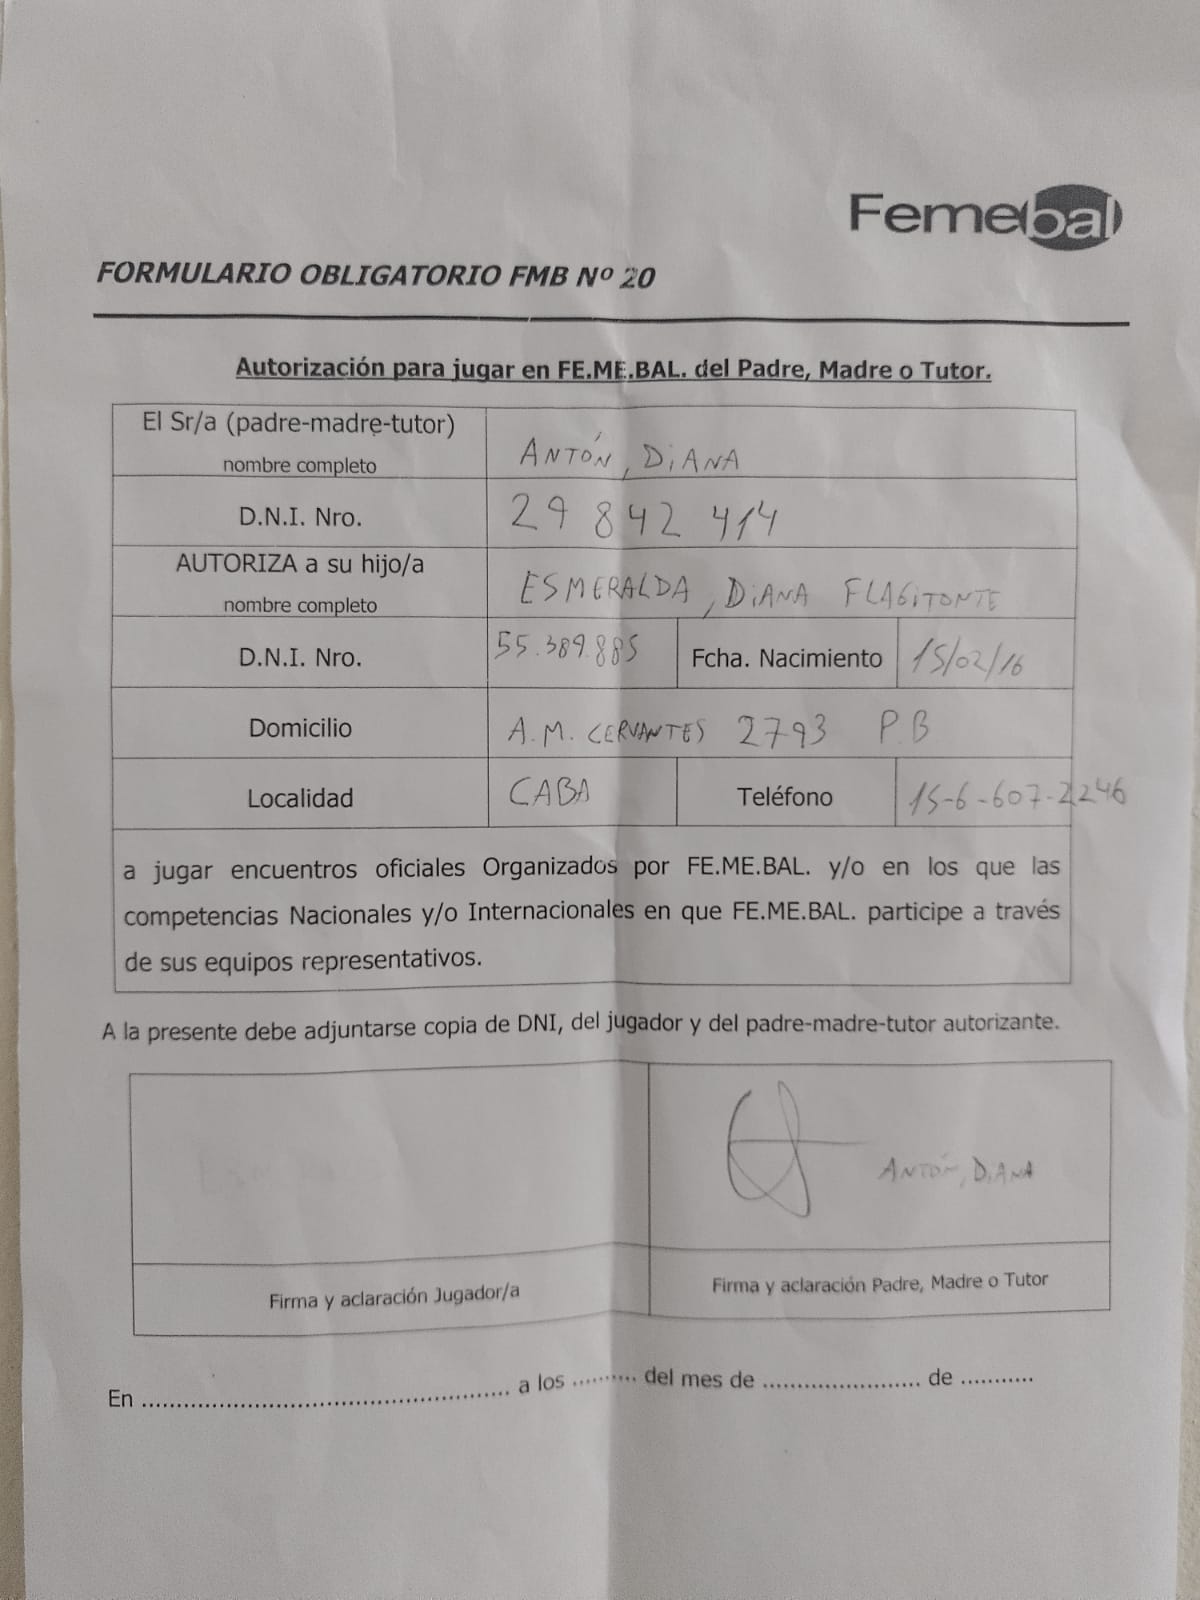 Femebal
FORMULARIO OBLIGATORIO FMB Nº 20
Autorización para jugar en FE.ME.BAL. del Padre, Madre o Tutor.
El Sr/a (padre-madre-tutor)
nombre completo
ANTÓN, DIANA
D.N.I. Nro.
29 842 414
AUTORIZA a su hijo/a
nombre completo
ESMERALDA, DIANA FLAGITONTE
D.N.I. Nro.
55.389.885
Fcha. Nacimiento
15/02/16
Domicilio
A.M. CERVANTES 2793 P.B
Localidad
CABA
Teléfono
15-6-607-2246
a jugar encuentros oficiales Organizados por FE.ME.BAL. y/o en los que las
competencias Nacionales y/o Internacionales en que FE.ME.BAL. participe a través
de sus equipos representativos.
A la presente debe adjuntarse copia de DNI, del jugador y del padre-madre-tutor autorizante.
ANTÓN, DIANA
Firma y aclaración Jugador/a
Firma y aclaración Padre, Madre o Tutor
En ........................................................ a los .......... del mes de ........................ de ...........